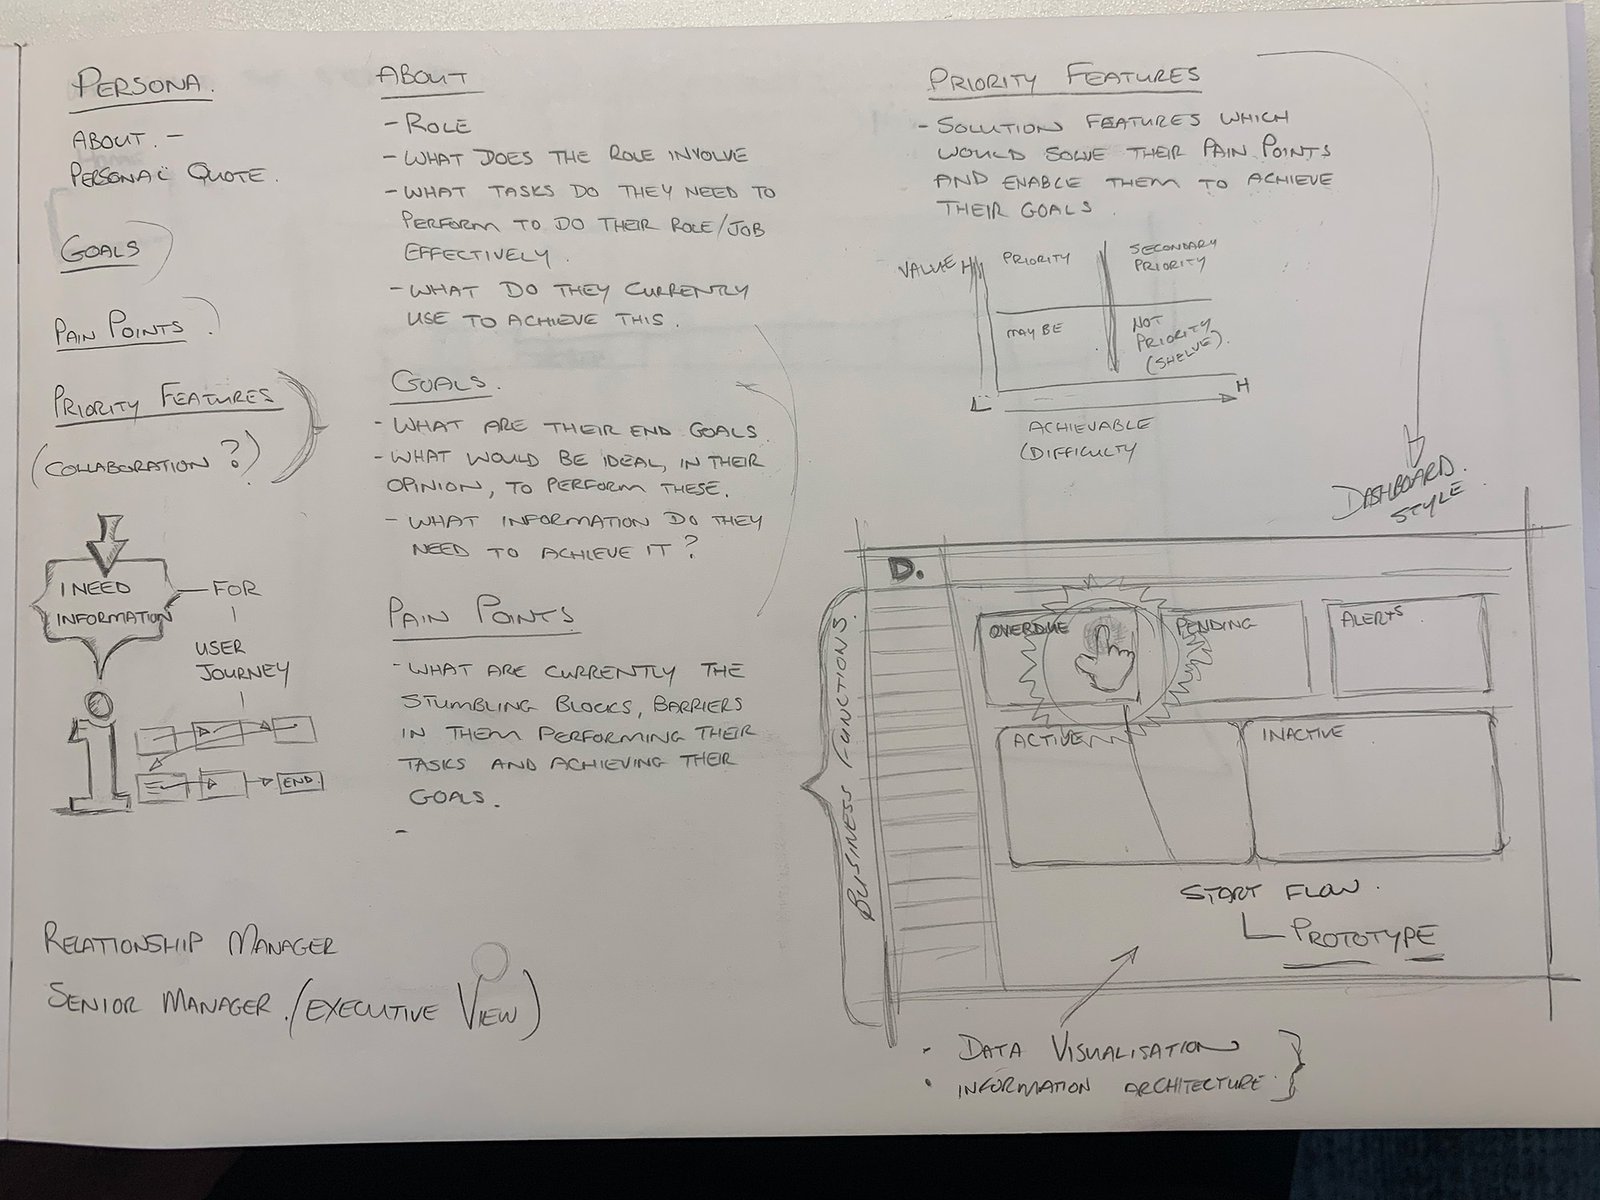 PERSONA.
ABOUT. -
PERSONAL QUOTE.
GOALS
PAIN POINTS
PRIORITY FEATURES
(COLLABORATION?)
I NEED
INFORMATION
FOR
USER
JOURNEY
END
RELATIONSHIP MANAGER
SENIOR MANAGER. (EXECUTIVE VIEW)
ABOUT
- ROLE
- WHAT DOES THE ROLE INVOLVE
- WHAT TASKS DO THEY NEED TO
PERFORM TO DO THEIR ROLE/JOB
EFFECTIVELY.
- WHAT DO THEY CURRENTLY
USE TO ACHIEVE THIS.
GOALS.
- WHAT ARE THEIR END GOALS.
- WHAT WOULD BE IDEAL, IN THEIR
OPINION, TO PERFORM THESE.
- WHAT INFORMATION DO THEY
NEED TO ACHIEVE IT?
PAIN POINTS
- WHAT ARE CURRENTLY THE
STUMBLING BLOCKS, BARRIERS
IN THEM PERFORMING THEIR
TASKS AND ACHIEVING THEIR
GOALS.
-
PRIORITY FEATURES
- SOLUTION FEATURES WHICH
WOULD SOLVE THEIR PAIN POINTS
AND ENABLE THEM TO ACHIEVE
THEIR GOALS.
VALUE H
PRIORITY
SECONDARY
PRIORITY
MAY BE
NOT
PRIORITY
(SHELVE).
L
H
ACHIEVABLE
(DIFFICULTY
DASHBOARD.
STYLE
D.
BUSINESS FUNCTIONS.
OVERDUE
PENDING
ALERTS
ACTIVE
INACTIVE
START FLOW.
PROTOTYPE
- DATA VISUALISATION
• INFORMATION ARCHITECTURE.